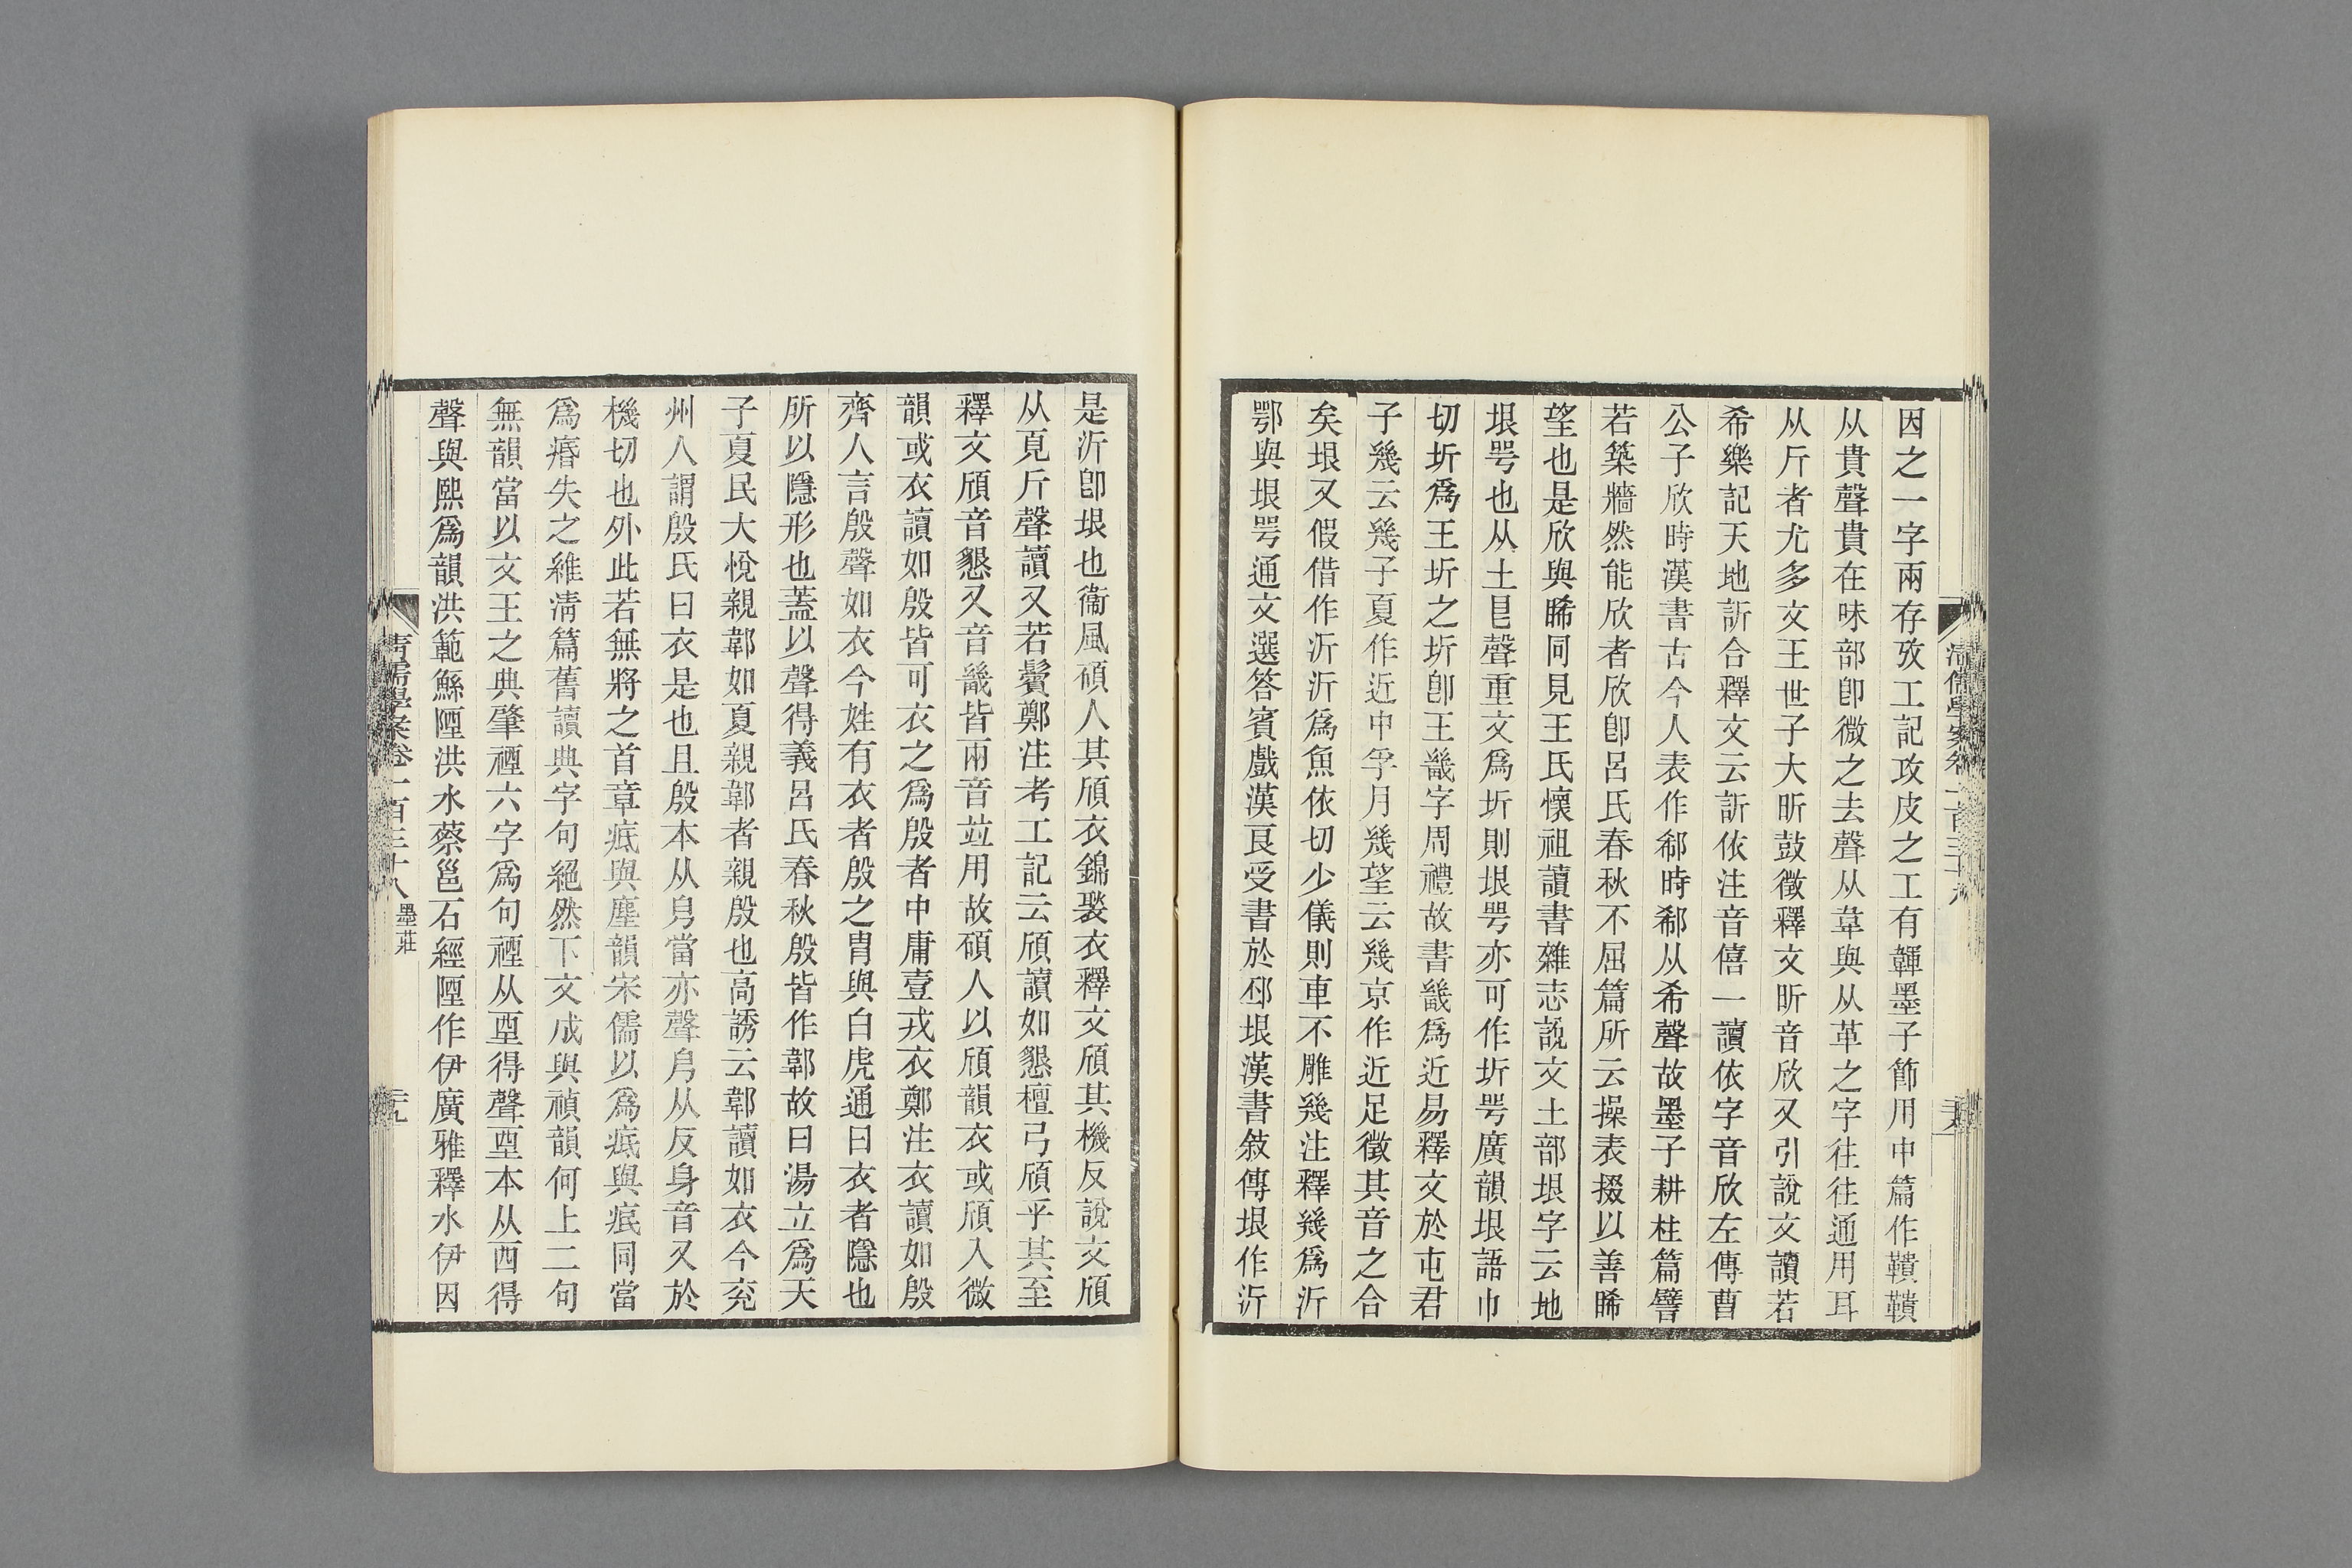 因之一字兩存攷工記攻皮之工有韗墨子節用中篇作鞼鞼
从貴聲貴在味部卽微之去聲从韋與从革之字往往通用耳
从斤者尤多文王世子大昕鼓徵釋文昕音欣又引說文讀若
希樂記天地訢合釋文云訢依注音僖一讀依字音欣左傳曹
公子欣時漢書古今人表作郗時郗从希聲故墨子耕柱篇譬
若築牆然能欣者欣卽呂氏春秋不屈篇所云操表掇以善睎
望也是欣與睎同見王氏懷祖讀書雜志說文土部垠字云地
垠咢也从土㫐聲重文爲圻則垠咢亦可作圻咢廣韻垠語巾
切圻爲王圻之圻卽王畿字周禮故書畿爲近易釋文於屯君
子幾云幾子夏作近中孚月幾望云幾京作近足徵其音之合
矣垠又假借作沂沂爲魚依切少儀則車不雕幾注釋幾爲沂
鄂與垠咢通文選答賓戲漢良受書於邳垠漢書敍傳垠作沂
清儒學案卷一百三十八
是沂卽垠也衞風碩人其頎衣錦褧衣釋文頎其機反說文頎
从頁斤聲讀又若鬢鄭注考工記云頎讀如懇檀弓頎乎其至
釋文頎音懇又音畿皆兩音竝用故碩人以頎韻衣或頎入微
韻或衣讀如殷皆可衣之爲殷者中庸壹戎衣鄭注衣讀如殷
齊人言殷聲如衣今姓有衣者殷之胄與白虎通曰衣者隱也
所以隱形也蓋以聲得義呂氏春秋殷皆作鄣故曰湯立爲天
子夏民大悅親鄣如夏親鄣者親殷也高誘云鄣讀如衣今兗
州人謂殷氏曰衣是也且殷本从㐆當亦聲㐆从反身音又於
機切也外此若無將之首章疷與塵韻宋儒以爲疷與痻同當
爲痻失之維淸篇舊讀典字句絕然下文成與禎韻何上二句
無韻當以文王之典肇禋六字爲句禋从垔得聲垔本从西得
聲與熙爲韻洪範鯀陻洪水蔡邕石經陻作伊廣雅釋水伊因
清儒學案卷一百三十八 墨莊
三九